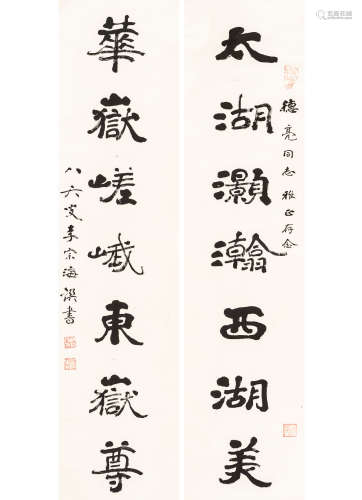 德亮同志雅正存念
太湖灝瀚西湖美
華嶽嵯峨東嶽尊
八六叟李宗海撰書